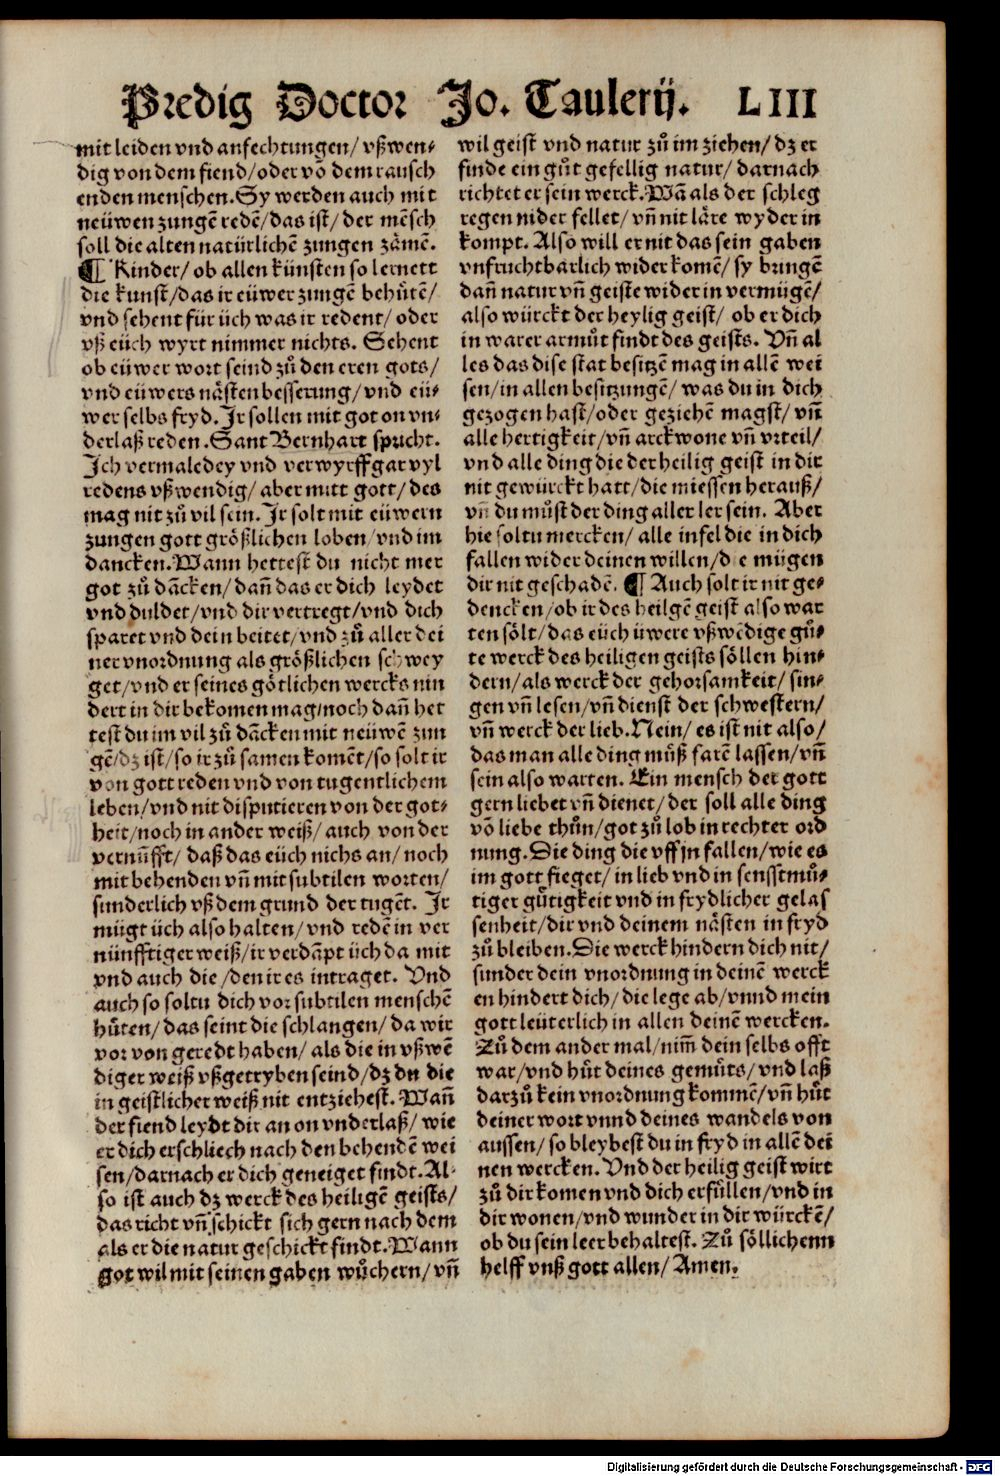 Predig Doctor Jo. Taulerij. LIII
mit leiden vnd anfechtungen/ vßwen⸗
dig von dem fiend/oder vō dem rausch
enden menschen. Sy werden auch mit
neüwen zungē redē/das ist/ der mēsch
soll die alten natürlichē zungen zämē.
¶ Kinder/ ob allen künsten so lernett
die kunst/das ir eüwer zungē behůtē/
vnd sehent für üch was ir redent/ oder
vß eüch wyrt nimmer nichts. Sehent
ob eüwer wort seind zů den eren gots/
vnd eüwers nästen besserung/vnd eü⸗
wer selbs fryd. Ir sollen mit got on vn⸗
derlaß reden. Sant Bernhart spricht.
Ich vermaledey vnd verwyrff gar vyl
redens vßwendig/ aber mitt gott/des
mag nit zů vil sein. Ir solt mit eüwern
zungen gott größlichen loben/vnd im
dancken. Wann hettest du nicht mer
got zů dācken/ dañ das er dich leydet
vnd duldet/vnd dir vertregt/vnd dich
sparet vnd dein beitet/vnd zů aller dei
ner vnordnung als größlichen schwey
get/vnd er seines götlichen wercks nin
dert in dir bekomen mag/noch dañ het
test du im vil zů dācken mit neüwē zun
gē/dz ist/so ir zů samen komēt/so solt ir
von gott reden vnd von tugentlichem
leben/vnd nit disputieren von der got⸗
heit/noch in ander weiß/ auch von der
vernüfft/ daß das eüch nichs an/noch
mit behenden vñ mit subtilen worten/
sunderlich vß dem grund der tugēt. Ir
mügt üch also halten/vnd redē in ver
nünfftiger weiß/ir verdāpt üch da mit
vnd auch die/den ir es intraget. Vnd
auch so soltu dich vor subtilen menschē
hůten/das seint die schlangen/da wir
vor von geredt haben/ als die in vßwē
diger weiß vßgetryben seind/dz du die
in geistlicher weiß nit entziehest. Wañ
der fiend leydt dir an on vnderlaß/ wie
er dich erschliech nach den behendē wei
sen/darnach er dich geneiget findt. Al⸗
so ist auch dz werck des heiligē geists/
das richt vñ schickt sich gern nach dem
als er die natur geschickt findt. Wann
got wil mit seinen gaben wůchern/vñ
wil geist vnd natur zů im ziehen/dz er
finde ein gůt gefellig natur/darnach
richtet er sein werck. Wā als der schleg
regen nider fellet/vñ nit läre wyder in
kompt. Also will er nit das sein gaben
vnfruchtbarlich wider komē/sy bringē
dañ natur vñ geiste wider in vermügē/
also würckt der heylig geist/ ob er dich
in warer armůt findt des geists. Vñ al
les das dise stat besitzē mag in allē wei
sen/in allen besitzungē/ was du in dich
gezogen hast/oder geziehē magst/vñ
alle hertigkeit/vñ arckwone vñ vrteil/
vnd alle ding die der heilig geist in dir
nit gewürckt hatt/die miessen herauß/
vñ du můst der ding aller ler sein. Aber
hie soltu mercken/ alle infel die in dich
fallen wider deinen willen/die mügen
dir nit geschadē. ¶ Auch solt ir nit ge⸗
dencken/ob ir des heilgē geist also war
ten sölt/das eüch üwere vßwēdige gů⸗
te werck des heiligen geists söllen hin⸗
dern/als werck der gehorsamkeit/sin⸗
gen vñ lesen/vñ dienst der schwestern/
vñ werck der lieb. Nein/ es ist nit also/
das man alle ding můß farē lassen/vñ
sein also warten. Ein mensch der gott
gern liebet vñ dienet/der soll alle ding
vō liebe thůn/got zů lob in rechter ord
nung. Die ding die vff jn fallen/wie es
im gott fieget/in lieb vnd in senfftmů⸗
tiger gůtigkeit vnd in frydlicher gelas
senheit/dir vnd deinem nästen in fryd
zů bleiben. Die werck hindern dich nit/
sunder dein vnordnung in deinē werck
en hindert dich/die lege ab/vnnd mein
gott leüterlich in allen deinē wercken.
Zů dem ander mal/nim̄ dein selbs offt
war/vnd hůt deines gemůts/vnd laß
darzů kein vnordnung kommē/vñ hůt
deiner wort vnnd deines wandels von
aussen/so bleybest du in fryd in allē dei
nen wercken. Vnd der heilig geist wirt
zů dir komen vnd dich erfüllen/vnd in
dir wonen/vnd wunder in dir würckē/
ob du sein leer behaltest. Zů söllichenn
helff vnß gott allen/Amen.
Digitalisierung gefördert durch die Deutsche Forschungsgemeinschaft - DFG